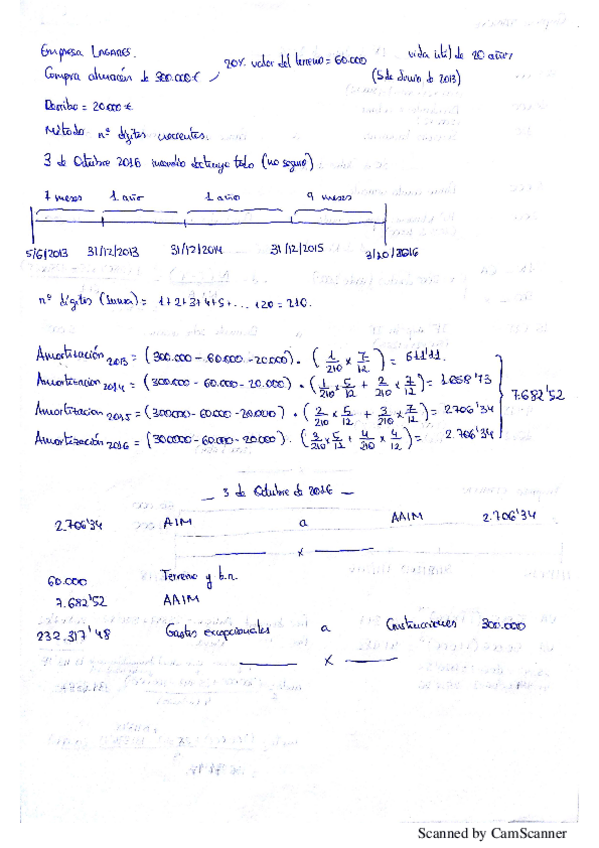 Empresa LAGARES.
Compra almacén de 300.000€, 20% valor del terreno = 60.000 vida útil de 20 años
(5 de Junio de 2013)
Derribo = 20.000€
Método nº dígitos crecientes.
3 de Octubre 2016 incendio destruye todo (no seguro)
7 meses 1 año 1 año 9 meses
5/6/2013 31/12/2013 31/12/2014 31/12/2015 3/10/2016
nº dígitos (suma) = 1+2+3+4+5+... +20 = 210.
Amortización 2013 = (300.000 - 60.000 - 20.000) · (1/210 x 7/12) = 611'11.
Amortización 2014 = (300.000 - 60.000 - 20.000) · (1/210 x 5/12 + 2/210 x 7/12) = 1.658'73
7.682'52
Amortización 2015 = (300.000 - 60.000 - 20.000) · (2/210 x 5/12 + 3/210 x 7/12) = 2.706'34
Amortización 2016 = (300.000 - 60.000 - 20.000) · (3/210 x 5/12 + 4/210 x 4/12) = 2.706'34
— 3 de Octubre de 2016 —
2.706'34 AIM a AAIM 2.706'34
x
60.000 Terreno y b.n.
7.682'52 AAIM
232.317'48 Gastos excepcionales a Construcciones 300.000
x
Scanned by CamScanner